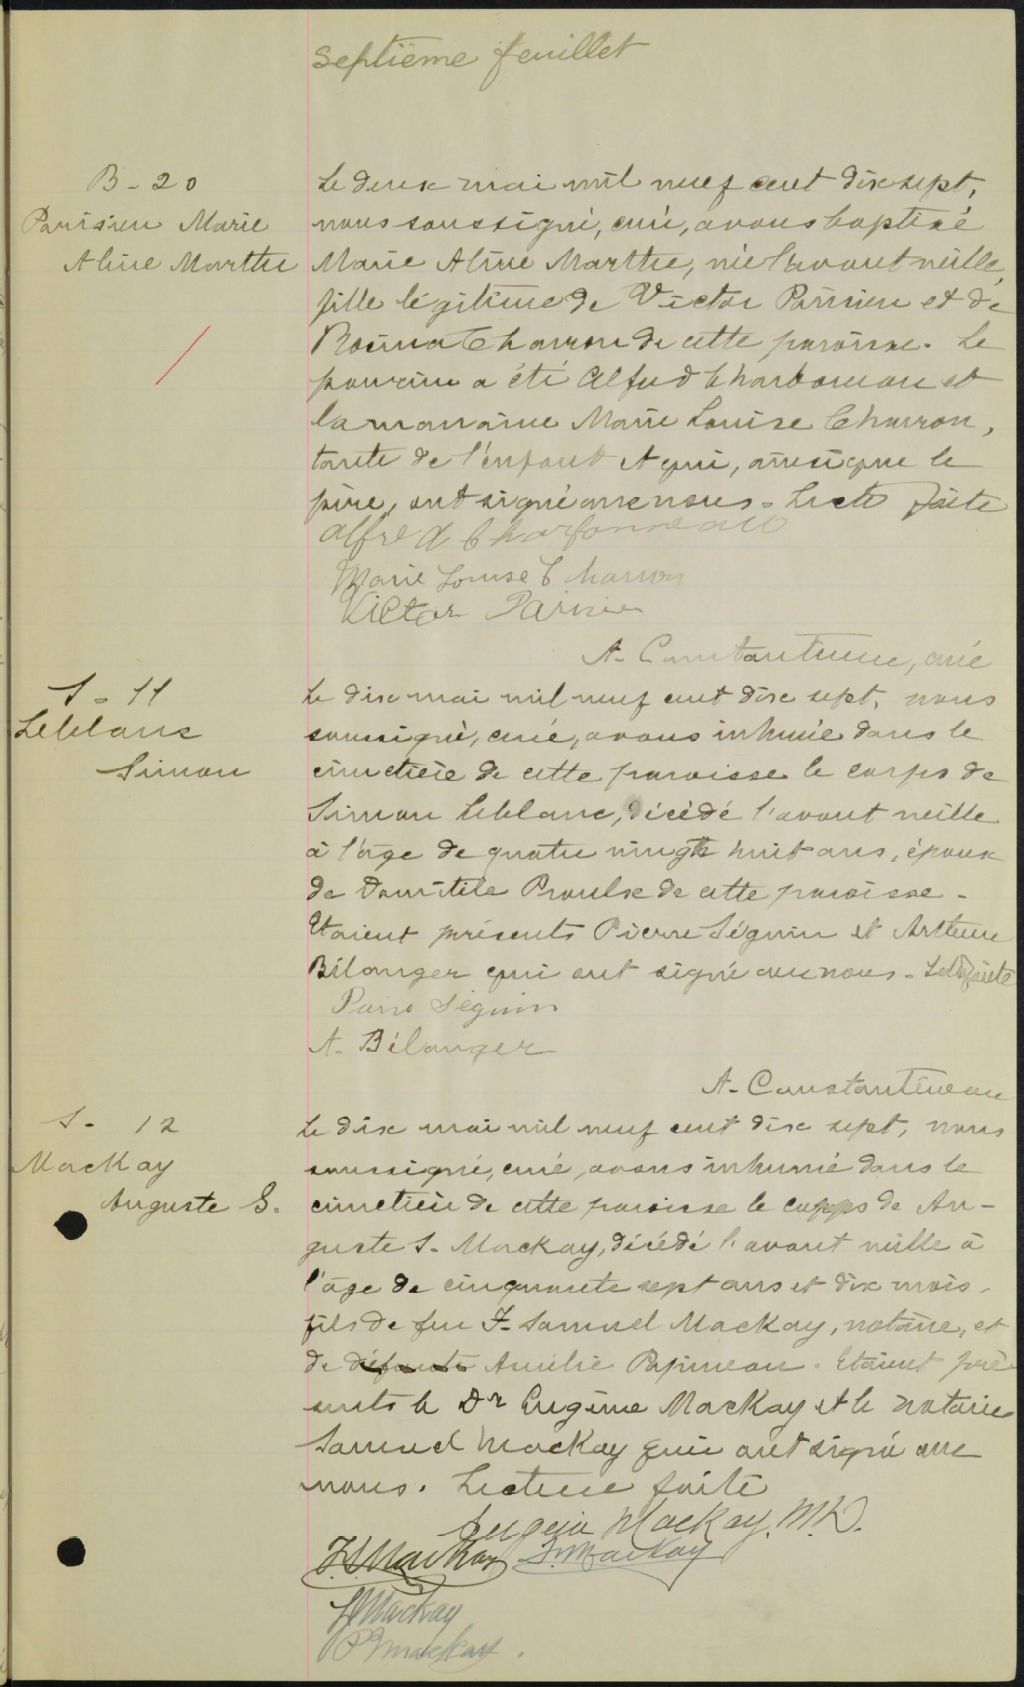 Septième feuillet
B-20
Parisien Marie
Aline Marthe
Le deux mai mil neuf cent dix sept,
nous soussigné, curé, avons baptisé
Marie Aline Marthe, née l'avant veille,
fille légitime de Victor Parisien et de
Rosina Charron de cette paroisse. Le
parrain a été Alfred Charbonneau et
la marraine Marie Louise Charron,
tante de l'enfant et qui, ainsi que le
père, ont signé avec nous. Lect. faite
Alfred Charbonneau
Marie Louise Charron
Victor Parisien
A. Constantineau, curé
S-11
Leblanc
Simon
Le dix mai mil neuf cent dix sept, nous
soussigné, curé, avons inhumé dans le
cimetière de cette paroisse le corps de
Simon Leblanc, décédé l'avant veille
à l'âge de quatre vingt huit ans, époux
de Domitile Proulx de cette paroisse.
Etaient présents Pierre Séguin et Arthur
Bélanger qui ont signé avec nous. Lect faite
Séguin
A. Bélanger
A. Constantineau
S. 12
MacKay
Auguste S.
Le dix mai mil neuf cent dix sept, nous
soussigné, curé, avons inhumé dans le
cimetière de cette paroisse le corps de Au-
guste S. MacKay, décédé l'avant veille à
l'âge de cinquante sept ans et dix mois,
fils de feu F. Samuel MacKay, notaire, et
de défunte Amélie Papineau. Etaient pré-
sents le Dr Eugène MacKay et le notaire
Samuel MacKay qui ont signé avec
nous. Lecture faite
Eugène MacKay, M.D.
F.S. MacKay MacKay
MacKay
MacKay.